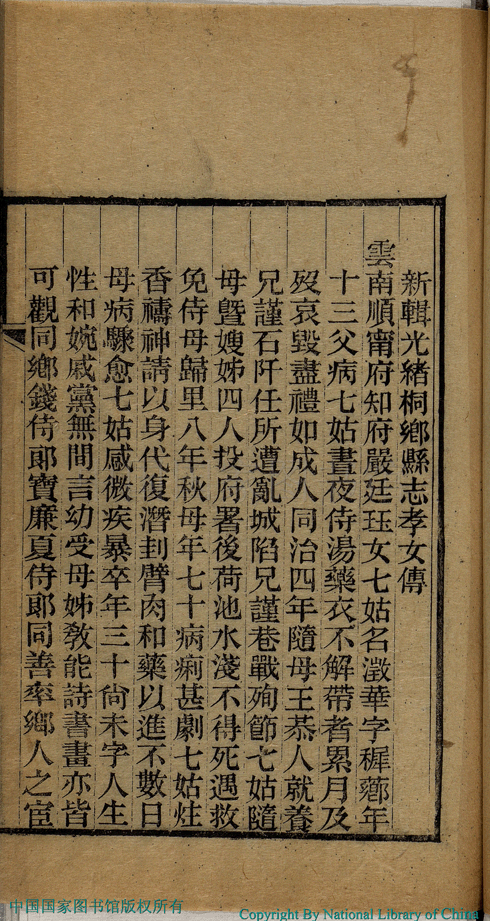 新輯光緒桐鄉縣志孝女傳
雲南順甯府知府嚴廷珏女七姑名澂華字穉薌年
十三父病七姑晝夜侍湯藥衣不解帶者累月及
歿哀毀盡禮如成人同治四年隨母王恭人就養
兄謹石阡任所遭亂城陷兄謹巷戰殉節七姑隨
母暨嫂姊四人投府署後荷池水淺不得死遇救
免侍母歸里八年秋母年七十病痢甚劇七姑炷
香禱神請以身代復潛刲臂肉和藥以進不數日
母病驟愈七姑感微疾暴卒年三十尙未字人生
性和婉戚黨無間言幼受母姊敎能詩書畫亦皆
可觀同鄉錢侍郞寶廉夏侍郞同善率鄉人之宦
中国国家图书馆版权所有
Copyright By National Library of China